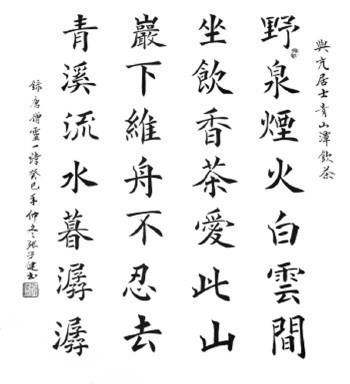 與亢居士青山潭飲茶
野泉煙火白雲間
坐飲香茶愛此山
巖下維舟不忍去
青溪流水暮潺潺
錄唐僧靈一詩癸巳年仲冬張健書